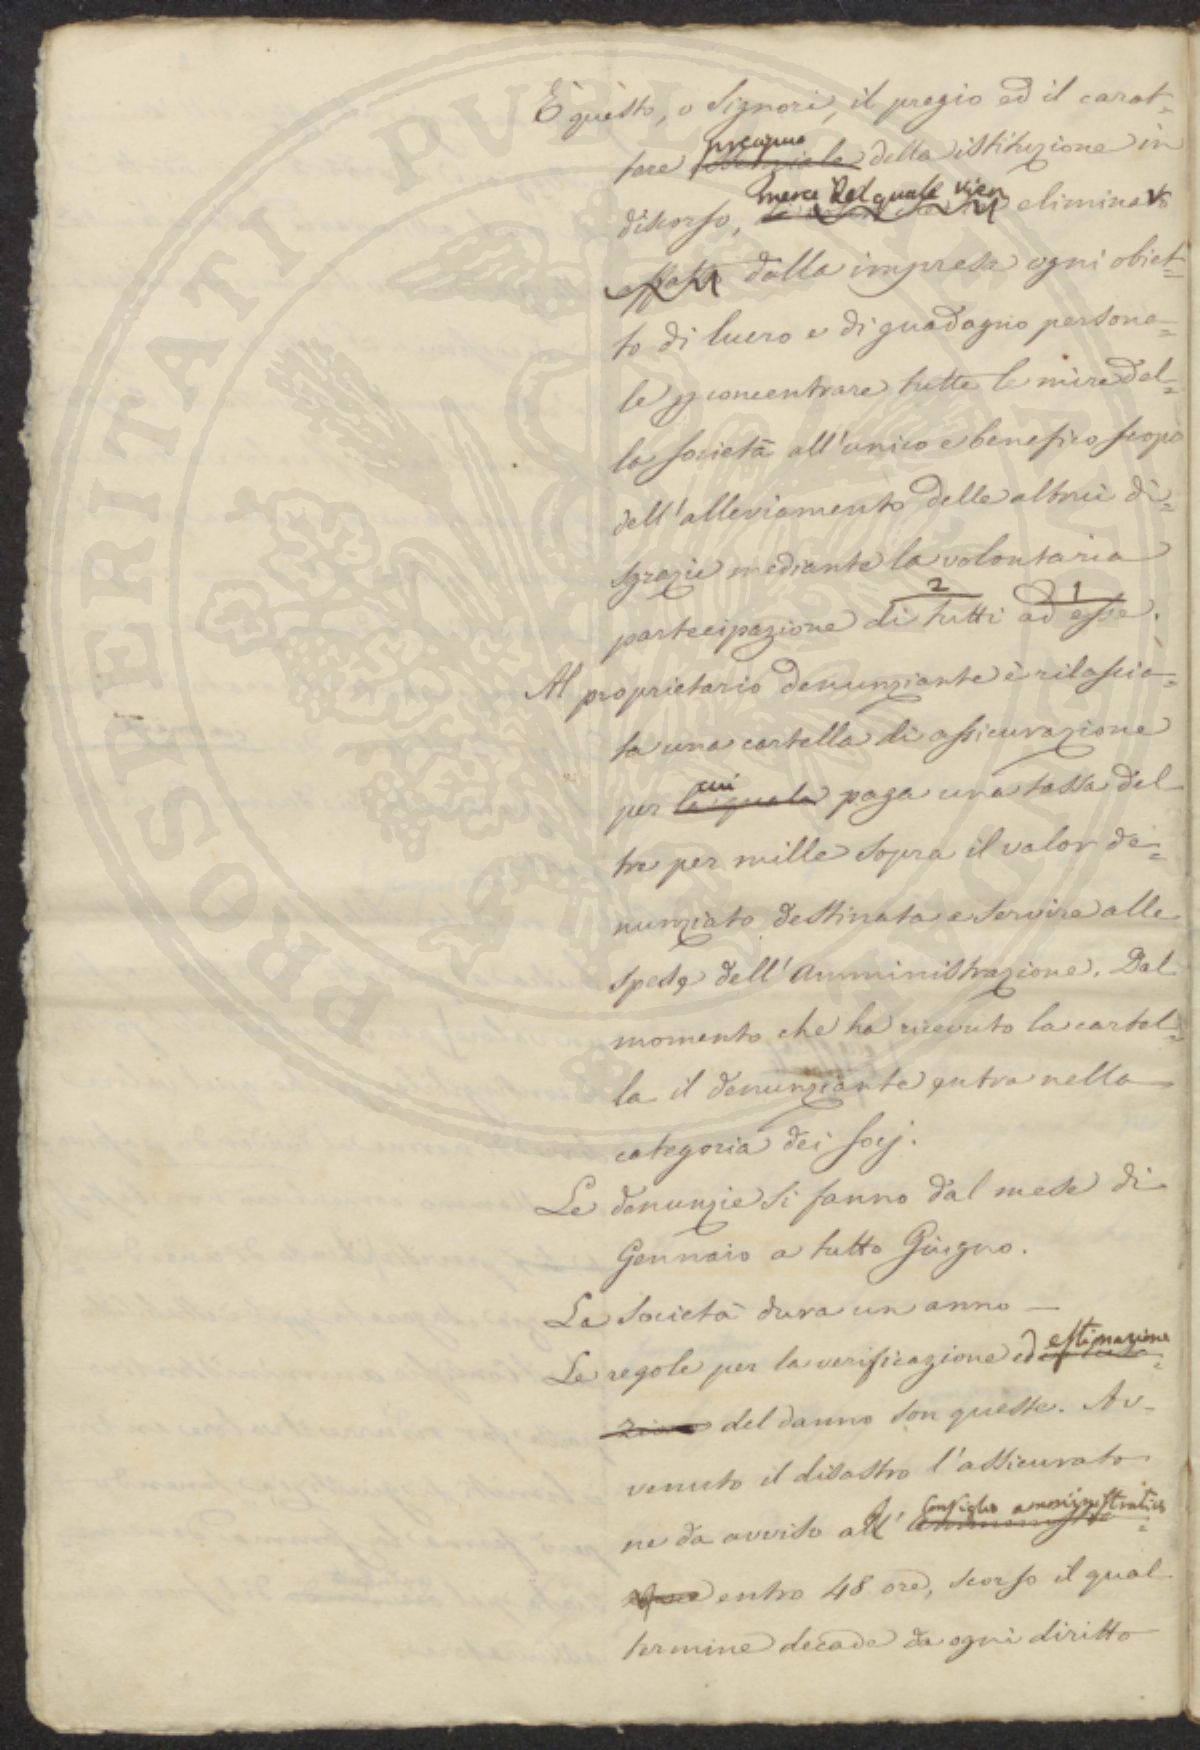 È questo, o Signori, il pregio ed il carat=
tere essenziale precipuo della istituzione in
discorso, mercè del quale vien eliminato
affatto dalla impresa ogni obiet=
to di lucro e di guadagno persona=
le p concentrare tutte le mire del=
la società all'unico e benefico scopo
dell'alleviamento delle altrui di=
sgrazie mediante la volontaria
2 1
partecipazione di tutti ad esse.
Al proprietario denunziante è rilascia=
ta una cartella di assicurazione
per la quale cui paga una tassa del
tre per mille sopra il valor de=
nunziato destinata a servire alle
spese dell'Amministrazione. Dal
momento che ha ricevuto la cartel=
la il denunziante entra nella
categoria dei socj.
Le denunzie si fanno dal mese di
Gennaio a tutto Giugno.
La Società dura un anno —
Le regole per la verificazione ed estimazione
zione del danno son queste. Av=
venuto il disastro l'assicurato
ne da avviso al Consiglio amministrativo
entro 48 ore, scorso il qual
termine decade da ogni diritto
PROSPERITATI PVBLICAE